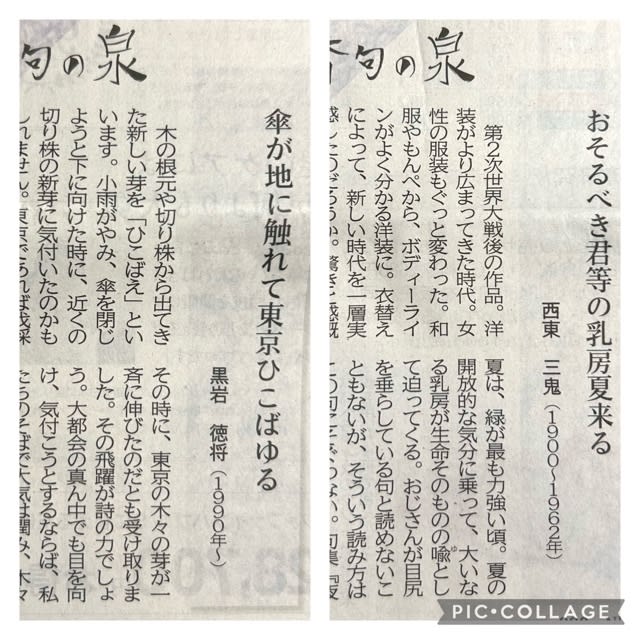 句の泉
傘が地に触れて東京ひこばゆる
黒岩 徳将(1990年〜)
木の根元や切り株から出てき
た新しい芽を「ひこばえ」とい
います。小雨がやみ、傘を閉じ
ようと下に向けた時に、近くの
切り株の新芽に気付いたのかも
しれません。東京であれば伐採
その時に、東京の木々の芽が一
斉に伸びたのだとも受け取りま
した。その飛躍が詩の力でしょ
う。大都会の真ん中でも目を向
け、気付こうとするならば、私
たちのそばで大気は潤み、木々
句の泉
おそるべき君等の乳房夏来る
西東 三鬼(1900〜1962年)
第2次世界大戦後の作品。洋
装がより広まってきた時代。女
性の服装もぐっと変わった。和
服やもんぺから、ボディーライ
ンがよく分かる洋装に。衣替え
によって、新しい時代を一層実
感したのだろうか。驚きと感慨
夏は、緑が最も力強い頃。夏の
開放的な気分に乗って、大いな
る乳房が生命そのものの喩とし
ゆ
て迫ってくる。おじさんが目尻
を垂らしている句と読めないこ
ともないが、そういう読み方は
PIC•COLLAGE